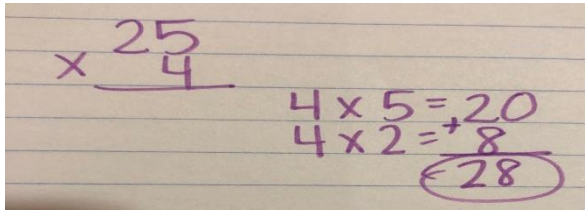 25
× 4
4 × 5 = 20
4 × 2 = + 8
28